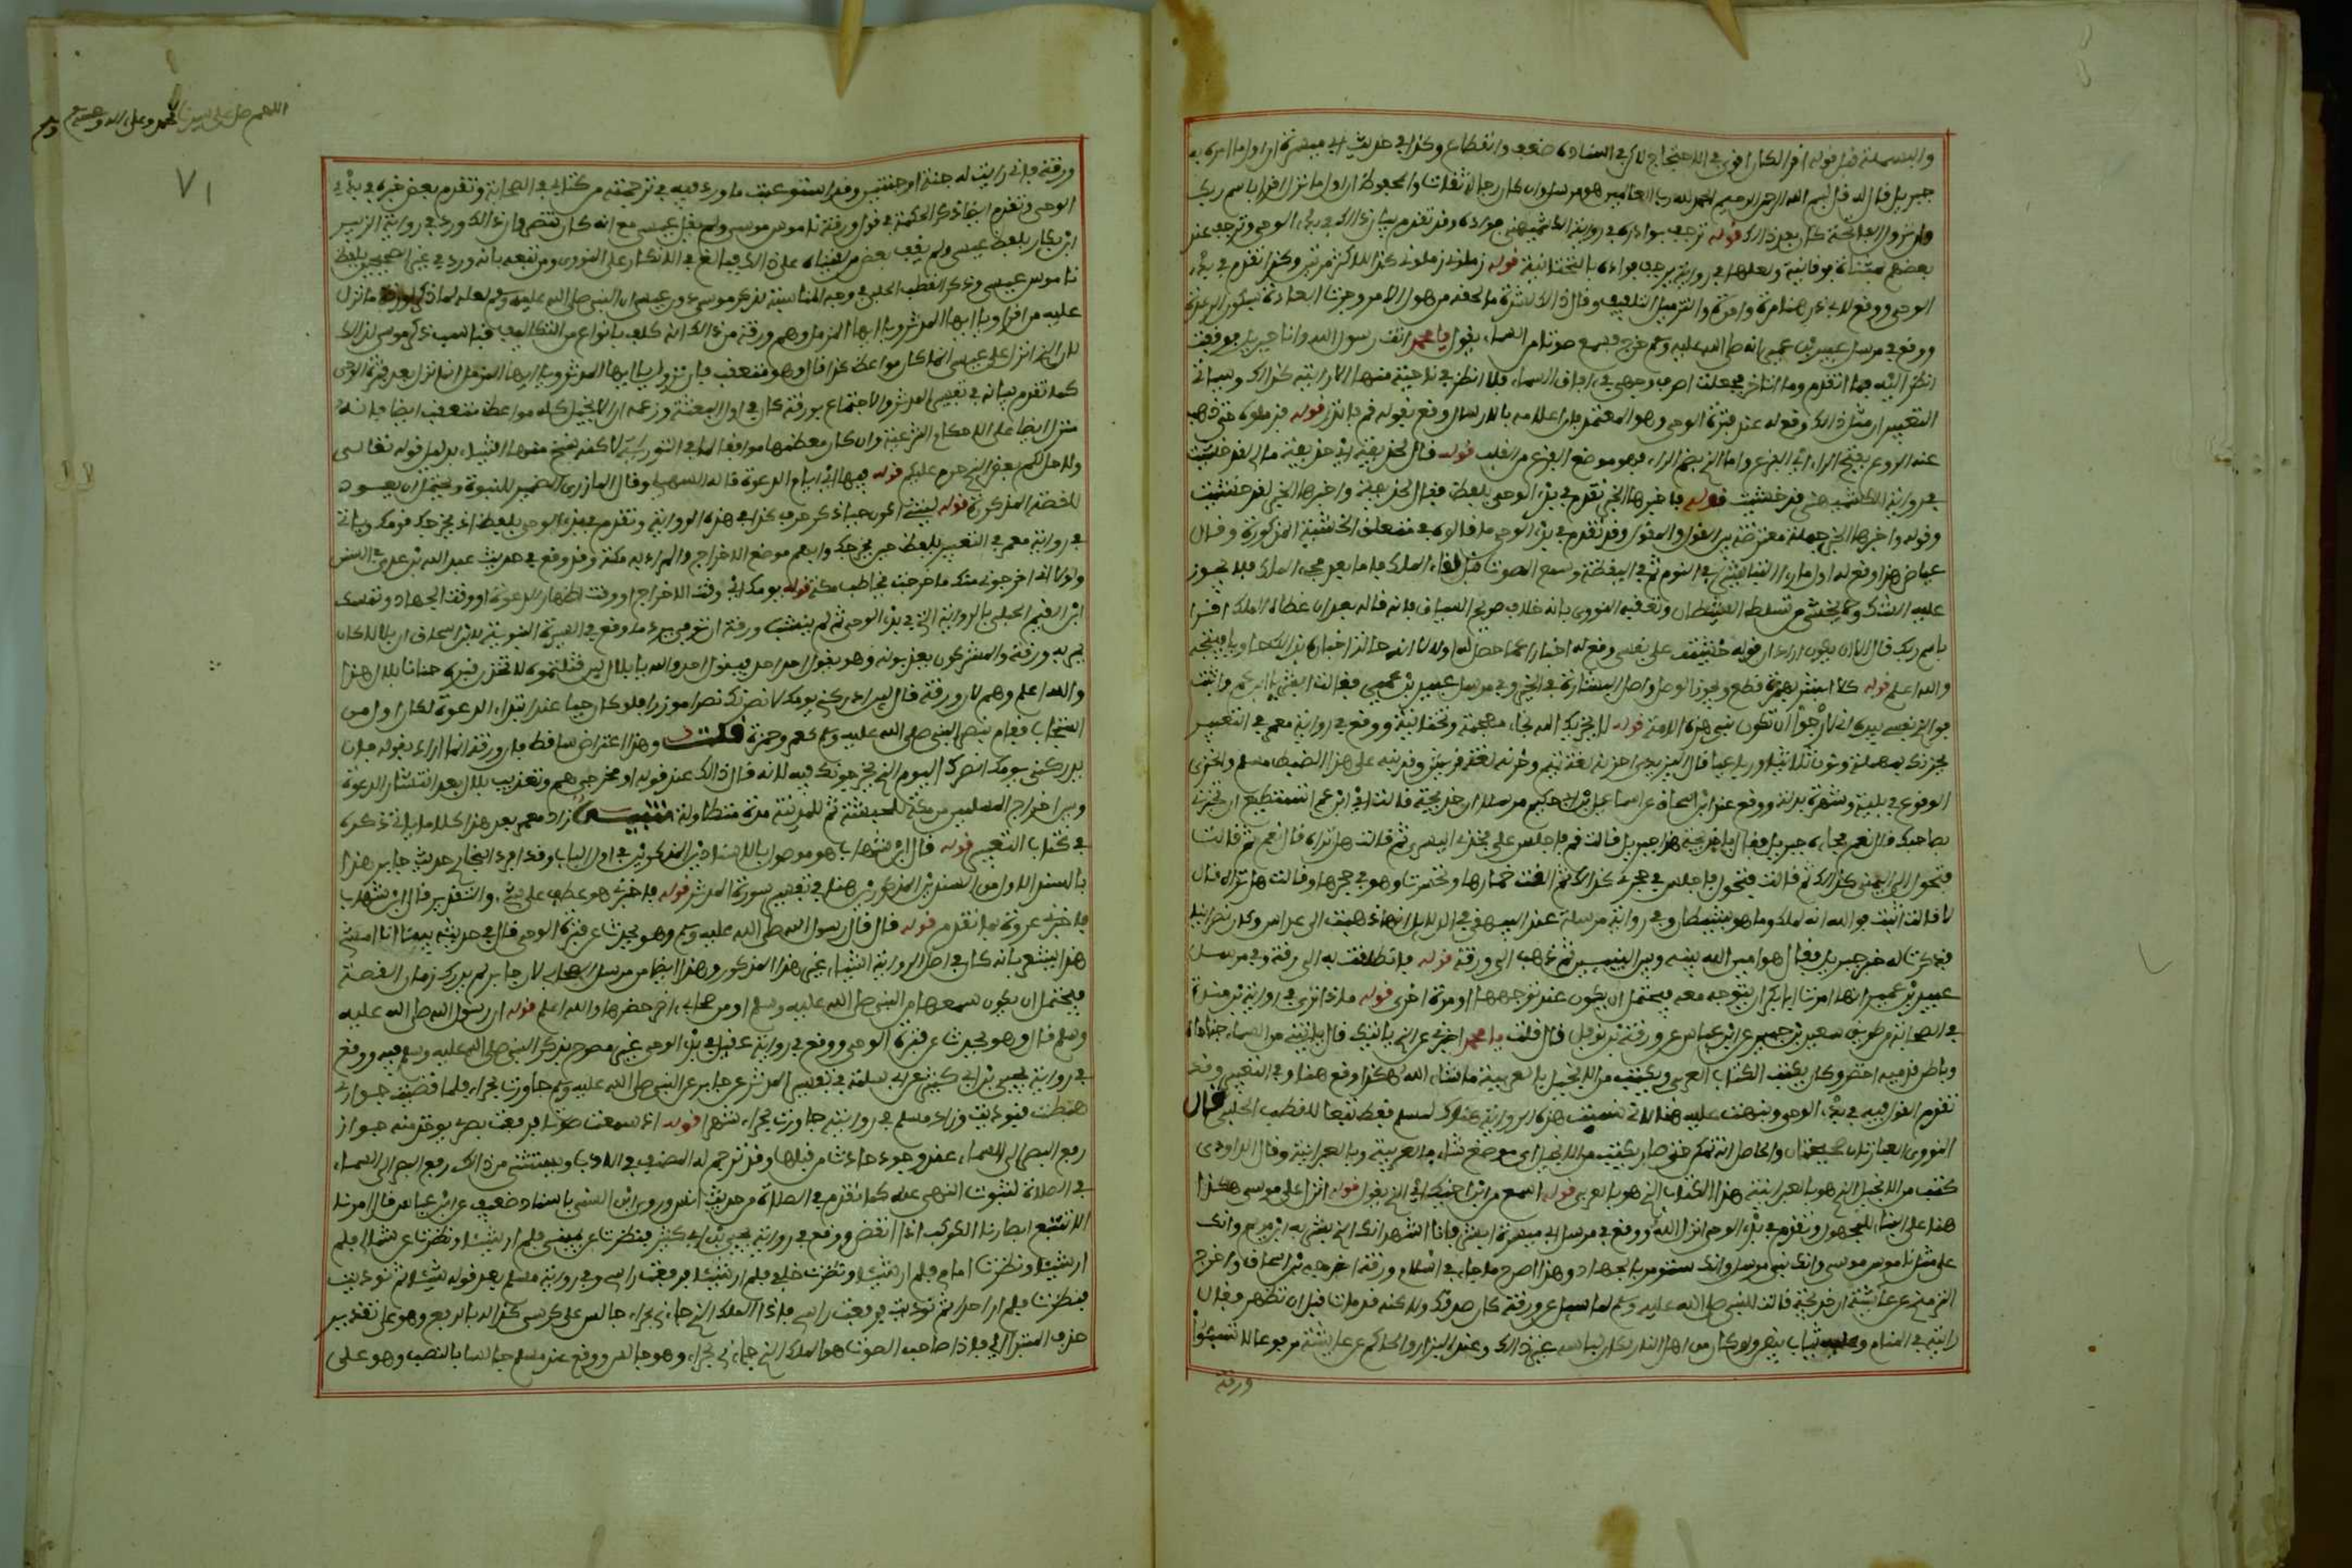 والبسملة قبل قوله اقرأ لكان اقوى في الاحتجاج لاكن في اسناده ضعف وانقطاع وكذا في حديث ابي ميسرة ان اول ما امره به
جبريل قال له قل بسم الله الرحمن الرحيم الحمد لله رب العالمين هو مرسل وان كان رجاله ثقات والمحفوظ ان اول ما نزل اقرا باسم ربك
وان نزول الفاتحة كان بعد ذالك قوله ترجف بوادره في رواية الكشميهني فؤاده وقد تقدم بيان ذالك في بدء الوحي وترجف عند
بعضهم بمثناة فوقانية ولعلها في رواية يرجف فؤاده بالتحتانية قوله زملوني زملوني كذا للاكثر مرتين وكذا تقدم في بدء
الوحي ووقع لابي ذر هنا مرة واحدة والتزميل التلفيف وقال ذالك لشدة ما لحقه من هول الامر وجرت العادة بسكون الرعدة
ووقع في مرسل عبيد بن عمير انه صلى الله عليه وسلم خرج فسمع صوتا من السماء يقول يا محمد انت رسول الله وانا جبريل فوقفت
انظر اليه فما اتقدم وما اتاخر فجعلت اصرف وجهي في ءافاق السماء فلا انظر في ناحية منها الا رايته كذالك وسياتي
التعبير ان مثل ذالك وقع له عند فترة الوحي وهو المعتمد فان اعلامه بالارسال وقع بقوله قم فانذر قوله فزملوه حتى ذهب
عنه الروع بفتح الراء اي الفزع واما الذي بضم الراء فهو موضع الفزع من القلب قوله قال لخديجة اي خديجة مالي لقد خشيت
في رواية الكشميهني قد خشيت قوله فاخبرها الخبر تقدم في بدء الوحي بلفظ فقال لخديجة واخبرها الخبر لقد خشيت
وقوله واخبرها الخبر جملة معترضة بين القول والمقول وقد تقدم في بدء الوحي ما قالوه في متعلق الخشية المذكورة وقال
عياض هذا وقع له اول ما راى التباشير في النوم ثم في اليقظة وسمع الصوت قبل لقاء الملك فاما بعد مجيء الملك فلا يجوز
عليه الشك ولا يخشى من تسلط الشيطان وتعقبه النووي بانه خلاف صريح السياق فانه قاله بعد ان غطاه الملك اقرا
باسم ربك قال الا ان يكون اراد ان قوله خشيت على نفسي وقع له اخبارا عما حصل له اولا لا انه حالة اخباره بذالك جاز فيتجه
والله اعلم قوله كلا ابشر بهمزة قطع ويجوز الوصل واصل البشارة في الخير وفي مرسل عبيد بن عمير فقالت ابشر يا ابن عم واثبت
فوالذي نفسي بيده اني لارجو ان تكون نبي هذه الامة قوله لا يخزيك الله بخاء معجمة وتحتانية ووقع في رواية معمر في التعبير
يحزنك بمهملة ونون ثلاثيا ورباعيا قال اليزيدي احزنه لغة تميم وحزنه لغة قريش وقد نبه على هذا الضبط مسلم والخزي
الوقوع في بلية وشهرة بذلة ووقع عند ابن اسحاق عن اسماعيل بن ابي حكيم مرسلا ان خديجة قالت اي ابن عم اتستطيع ان تخبرني
بصاحبك قال نعم فجاءه جبريل فقال يا خديجة هذا جبريل قالت قم فاجلس على فخذي اليسرى ثم قالت هل تراه قال نعم ثم قالت
فتحول الى اليمنى كذالك ثم قالت فتحول فاجلس في حجري كذالك ثم القت خمارها وتحسرت وهو في حجرها وقالت هل تراه قال
لا قالت اثبت فوالله انه لملك وما هو بشيطان وفي رواية مرسلة عند البيهقي في الدلايل انها ذهبت الى عداس وكان نصرانيا
فذكرت له خبر جبريل فقال هو امين الله بينه وبين النبيين ثم ذهب الى ورقة قوله فانطلقت به الى ورقة وفي مرسل
عبيد بن عمير انها امرت ابا بكر ان يتوجه معه فيحتمل ان يكون عند توجهها او مرة اخرى قوله ماذا ترى في رواية بن منده
في الصحابة من طريق سعيد بن جبير عن ابن عباس عن ورقة بن نوفل قال قلت يا محمد اخبرني عن الذي ياتيك قال ياتيني من السماء جناحاه لؤلؤ
وباطن قدميه اخضر وكان يكتب الكتاب العربي ويكتب من الانجيل بالعربية ما شاء الله هكذا وقع هنا وفي التعبير وقد
تقدم القول فيه في بدء الوحي ونبهت عليه هنا لاني نسيت هذه الرواية هناك لمسلم فقط تبعا للقطب الحلبي قال
النووي العبارتان صحيحتان والحاصل انه تمكن حتى صار يكتب من الانجيل اي موضع شاء بالعربية وبالعبرانية وقال الداودي
كتب من الانجيل الذي هو بالعبرانية هذا الكتاب الذي هو بالعربي قوله اسمع من ابن اخيك اي الذي يقول قوله انزل على موسى هكذا
هنا على البناء للمجهول وتقدم في بدء الوحي انزل الله ووقع في مرسل ابي ميسرة ابشر فانا اشهد انك الذي بشر به ابن مريم وانك
على مثل ناموس موسى وانك نبي مرسل وانك ستؤمر بالجهاد وهذا اصرح ما جاء في اسلام ورقة اخرجه بن اسحاق واخرج
الترمذي عن عائشة ان خديجة قالت للنبي صلى الله عليه وسلم لما سئل عن ورقة كان صدقك ولاكنه قد مات قبل ان تظهر فقال
رايته في المنام وعليه ثياب بيض ولو كان من اهل النار لكان لباسه غير ذالك وعند البزار والحاكم عن عائشة مرفوعا لا تسبوا
ورقة
اللهم صل على سيدنا محمد وعلى ءاله وصحبه وسلم
٧١
ورقة فاني رايت له جنة او جنتين وقد استوعبت ما ورد فيه في ترجمته من كتابي في الصحابة وتقدم بعض خبره في بدء
الوحي وتقدم ايضا ذكر الحكمة في قول ورقة ناموس موسى ولم يقل عيسى مع انه كان تنصر وان ذالك ورد في رواية الزبير
ابن بكار بلفظ عيسى ولم يقف بعض من لقيناه على ذالك فبالغ في الانكار على النووي ومن تبعه بانه ورد في غير الصحيحين بلفظ
ناموس عيسى وذكر القطب الحلبي في وجه المناسبة لذكر موسى دون عيسى ان النبي صلى الله عليه وسلم لعله لما ذكر لورقة ما نزل
عليه من اقرا ويا ايها المدثر ويا ايها المزمل وفهم ورقة من ذالك انه كلف بانواع من التكاليف فناسب ذكر موسى لذالك
لان الذي انزل على عيسى انما كان مواعظ كذا قال وهو متعقب فان نزول يا ايها المدثر ويا ايها المزمل انما نزل بعد فترة الوحي
كما تقدم بيانه في تفسير المدثر والاجتماع بورقة كان في اول البعثة وزعمه ان الانجيل كله مواعظ متعقب ايضا فانه
منزل ايضا على الاحكام الشرعية وان كان معظمها موافقا لما في التورية لاكنه نسخ منها اشياء بدليل قوله تعالى
ولاحل لكم بعض الذي حرم عليكم قوله فيها اي ايام الدعوة قاله السهيلي وقال المازري الضمير للنبوة ويحتمل ان يعود
للقصة المذكورة قوله ليتني اكون حيا ذكر حرفا كذا في هذه الرواية وتقدم في بدء الوحي بلفظ اذ يخرجك قومك وياتي
في رواية معمر في التعبير بلفظ حين يخرجك وابهم موضع الاخراج والمراد به مكة وقد وقع في حديث عبد الله بن عدي في السنن
ولولا اني اخرجوني منك ما خرجت يخاطب مكة قوله يومك اي وقت الاخراج او وقت اظهار الدعوة او وقت الجهاد وتمسك
ابن القيم الحنبلي بالرواية التي في بدء الوحي ثم لم ينشب ورقة ان توفي يرد ما وقع في السيرة النبوية لابن اسحاق ان بلالا كان
يمر به ورقة والمشركون يعذبونه وهو يقول احد احد فيقول احد والله يا بلال لئن قتلتموه لاتخذن قبره حنانا بلال هذا
والله اعلم وهم لان ورقة قال لئن ادركني يومك لانصرنك نصرا مؤزرا فلو كان حيا عند ابتداء الدعوة لكان اول من
استجاب فقام بنصر النبي صلى الله عليه وسلم كعمر وحمزة قلت وهذا اعتراض ساقط فان ورقة انما اراد بقوله فان
يدركني يومك انصرك اليوم الذي يخرجونك فيه لانه قال ذالك عند قوله او مخرجي هم وتعذيب بلال بعد انتشار الدعوة
وبين اخراج المسلمين من مكة للحبشة ثم للمدينة مدة متطاولة تنبيه زاد معمر بعد هذا كلاما ياتي ذكره
في كتاب التعبير قوله قال ابن شهاب هو موصول بالاسنادين المذكورين في اول الباب وقد اورد البخاري حديث جابر هذا
بالسند الاول من السندين المذكورين هنا في تفسير سورة المدثر قوله فاخبرني هو عطف على شيء والتقدير قال ابن شهاب
فاخبرني عروة بما تقدم قوله قال قال رسول الله صلى الله عليه وسلم وهو يحدث عن فترة الوحي قال في حديثه بينا انا امشي
هذا يشعر بانه كان في اصل الرواية اشياء غير هذا المذكور وهذا ايضا من مرسل الصحابي لان جابر لم يدرك زمان القصة
فيحتمل ان يكون سمعها من النبي صلى الله عليه وسلم او من صحابي اخر حضرها والله اعلم قوله ان رسول الله صلى الله عليه
وسلم قال وهو يحدث عن فترة الوحي ووقع في رواية عقيل في بدء الوحي غير مصرح بذكر النبي صلى الله عليه وسلم فيه ووقع
في رواية يحيى بن ابي كثير عن ابي سلمة في تفسير المدثر عن جابر عن النبي صلى الله عليه وسلم جاورت بحراء فلما قضيت جواري
هبطت فنوديت وزاد مسلم في روايته جاورت بحراء شهرا قوله اذ سمعت صوتا فرفعت بصري يؤخذ منه جواز
رفع البصر الى السماء عند وجود حادث من قبلها وقد ترجم له المصنف في الادب ويستثنى من ذالك رفع البصر الى السماء
في الصلاة لثبوت النهي عنه كما تقدم في الصلاة من حديث انس وروى ابن السني باسناد ضعيف عن ابن عباس قال امرنا
الا نتبع ابصارنا الكوكب اذا انقض ووقع في رواية يحيى بن ابي كثير فنظرت عن يميني فلم ار شيئا ونظرت عن شمالي فلم
ار شيئا ونظرت امامي فلم ار شيئا ونظرت خلفي فلم ار شيئا فرفعت راسي وفي رواية مسلم بعد قوله شيئا ثم نوديت
فنظرت فلم ار احدا ثم نوديت فرفعت راسي فاذا الملك الذي جاءني بحراء جالس على كرسي كذا له بالرفع وهو على تقدير
حذف المبتدا اي فاذا صاحب الصوت هو الملك الذي جاءني بحراء وهو جالس ووقع عند مسلم جالسا بالنصب وهو على